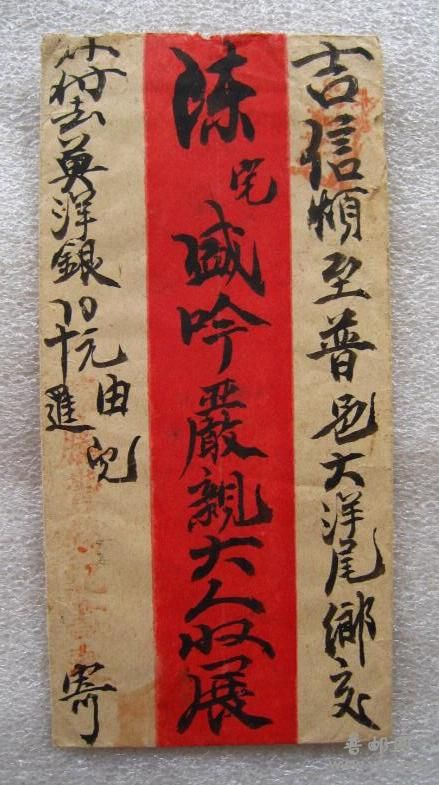 吉信煩至普邑大洋尾鄉交
陳宅盛吟嚴親大人收展
付去英洋銀
元由兒
寄